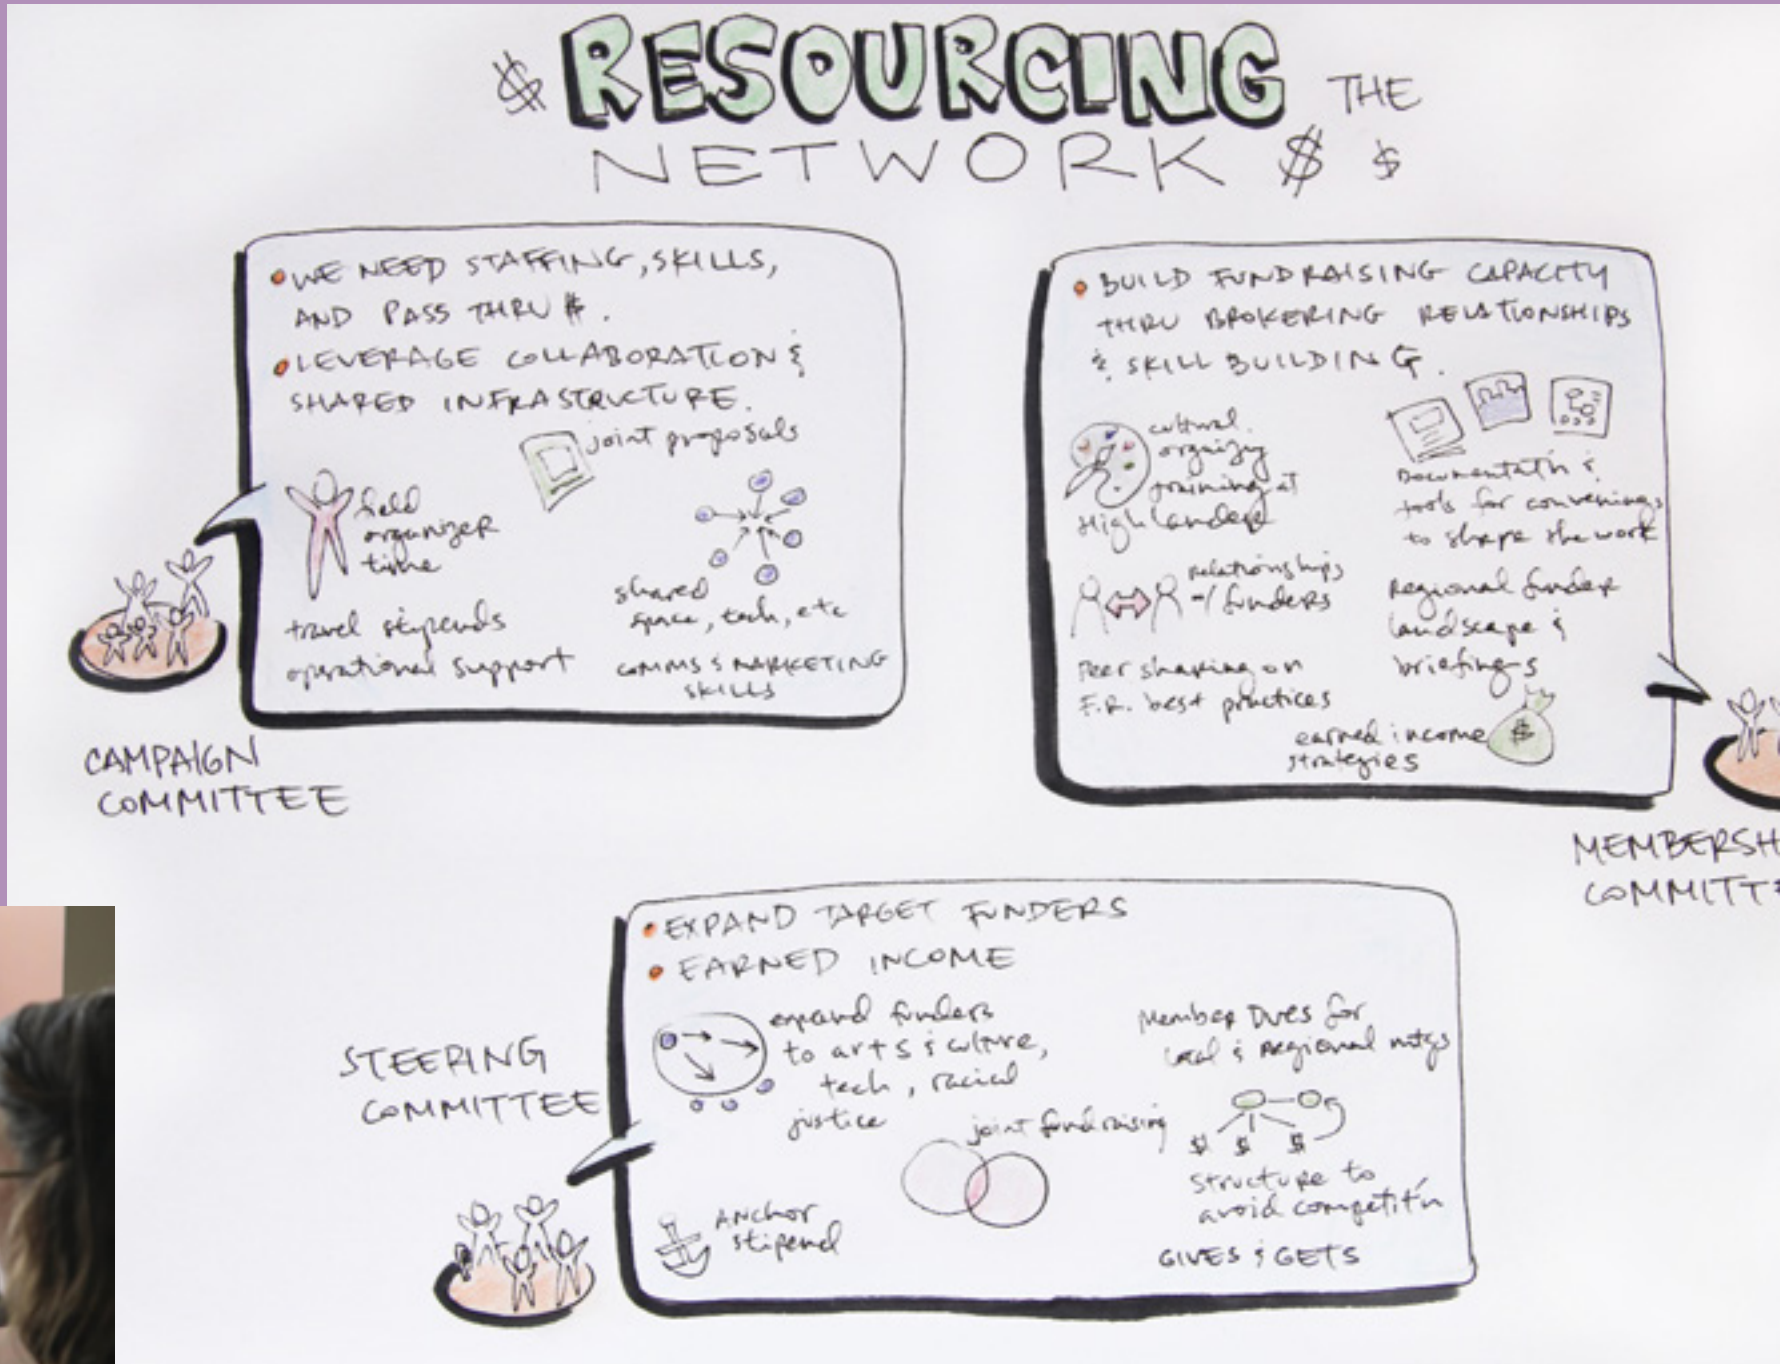 $ RESOURCING THE
NETWORK $ $
• WE NEED STAFFING, SKILLS,
AND PASS THRU $.
• LEVERAGE COLLABORATION &
SHARED INFRASTRUCTURE.
joint proposals
field
organizer
time
shared
space, tech, etc
travel stipends
operational support
COMMS & MARKETING
SKILLS
CAMPAIGN
COMMITTEE
• BUILD FUNDRAISING CAPACITY
THRU BROKERING RELATIONSHIPS
& SKILL BUILDING.
cultural
organizing
training at
Highlander
Documentat'n &
tools for convenings
to shape the work
relationships
w/ funders
Regional funder
landscape &
briefings
Peer sharing on
F.R. best practices
earned income
strategies
$
MEMBERSH
COMMITTE
• EXPAND TARGET FUNDERS
• EARNED INCOME
expand funders
to arts & culture,
tech, racial
justice
Member Dues for
local & Regional mtgs
joint fundraising
$ $ $
structure to
avoid competit'n
ANCHOR
stipend
GIVES & GETS
STEERING
COMMITTEE